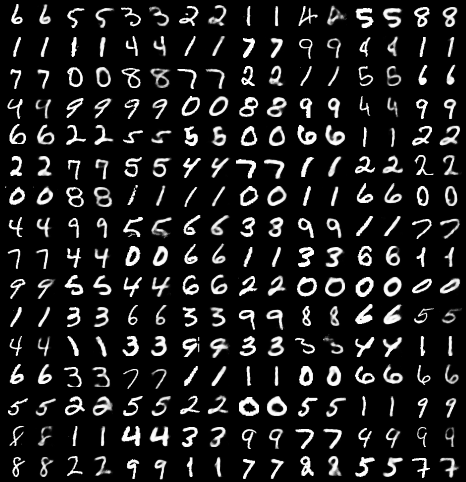 6 6 5 5 3 3 2 2 1 1 4 4 5 5 8 8
1 1 1 1 4 4 1 1 7 7 9 9 4 4 1 1
7 7 0 0 8 8 7 7 2 2 1 1 5 5 6 6
4 4 9 9 9 9 0 0 8 8 9 9 4 4 9 9
6 6 2 2 5 5 5 5 0 0 6 6 1 1 2 2
2 2 7 7 5 5 4 4 7 7 1 1 2 2 2 2
0 0 8 8 1 1 1 1 0 0 1 1 6 6 0 0
4 4 9 9 5 5 6 6 3 8 9 9 1 1 7 7
7 7 4 4 0 0 6 6 1 1 3 3 6 6 1 1
9 9 5 5 4 4 6 6 2 2 0 0 0 0 0 0
1 1 3 3 6 6 3 3 9 9 8 8 6 6 5 5
4 4 1 1 3 3 9 9 3 3 3 3 4 4 1 1
6 6 3 3 7 7 1 1 1 1 0 0 6 6 6 6
5 5 2 2 5 5 2 2 0 0 5 5 1 1 9 9
8 8 1 1 4 4 3 3 9 9 7 7 9 9 9 9
8 8 2 2 9 9 1 1 7 7 2 2 5 5 7 7